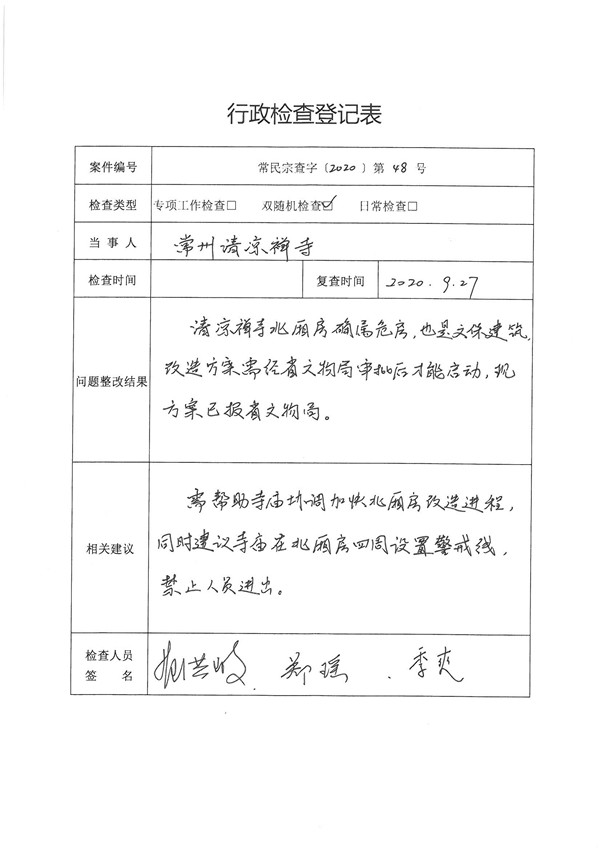 行政检查登记表
案件编号 常民宗查字〔2020〕第 48 号
检查类型 专项工作检查□ 双随机检查☑ 日常检查□
当事人 常州清凉禅寺
检查时间 复查时间 2020.9.27
问题整改结果
清凉禅寺北厢房确属危房,也是文保建筑,
改造方案需经省文物局审批后才能启动,现
方案已报省文物局。
相关建议
需帮助寺庙协调加快北厢房改造进程,
同时建议寺庙在北厢房四周设置警戒线,
禁止人员进出。
检查人员
签名
郑瑶 . 季爽